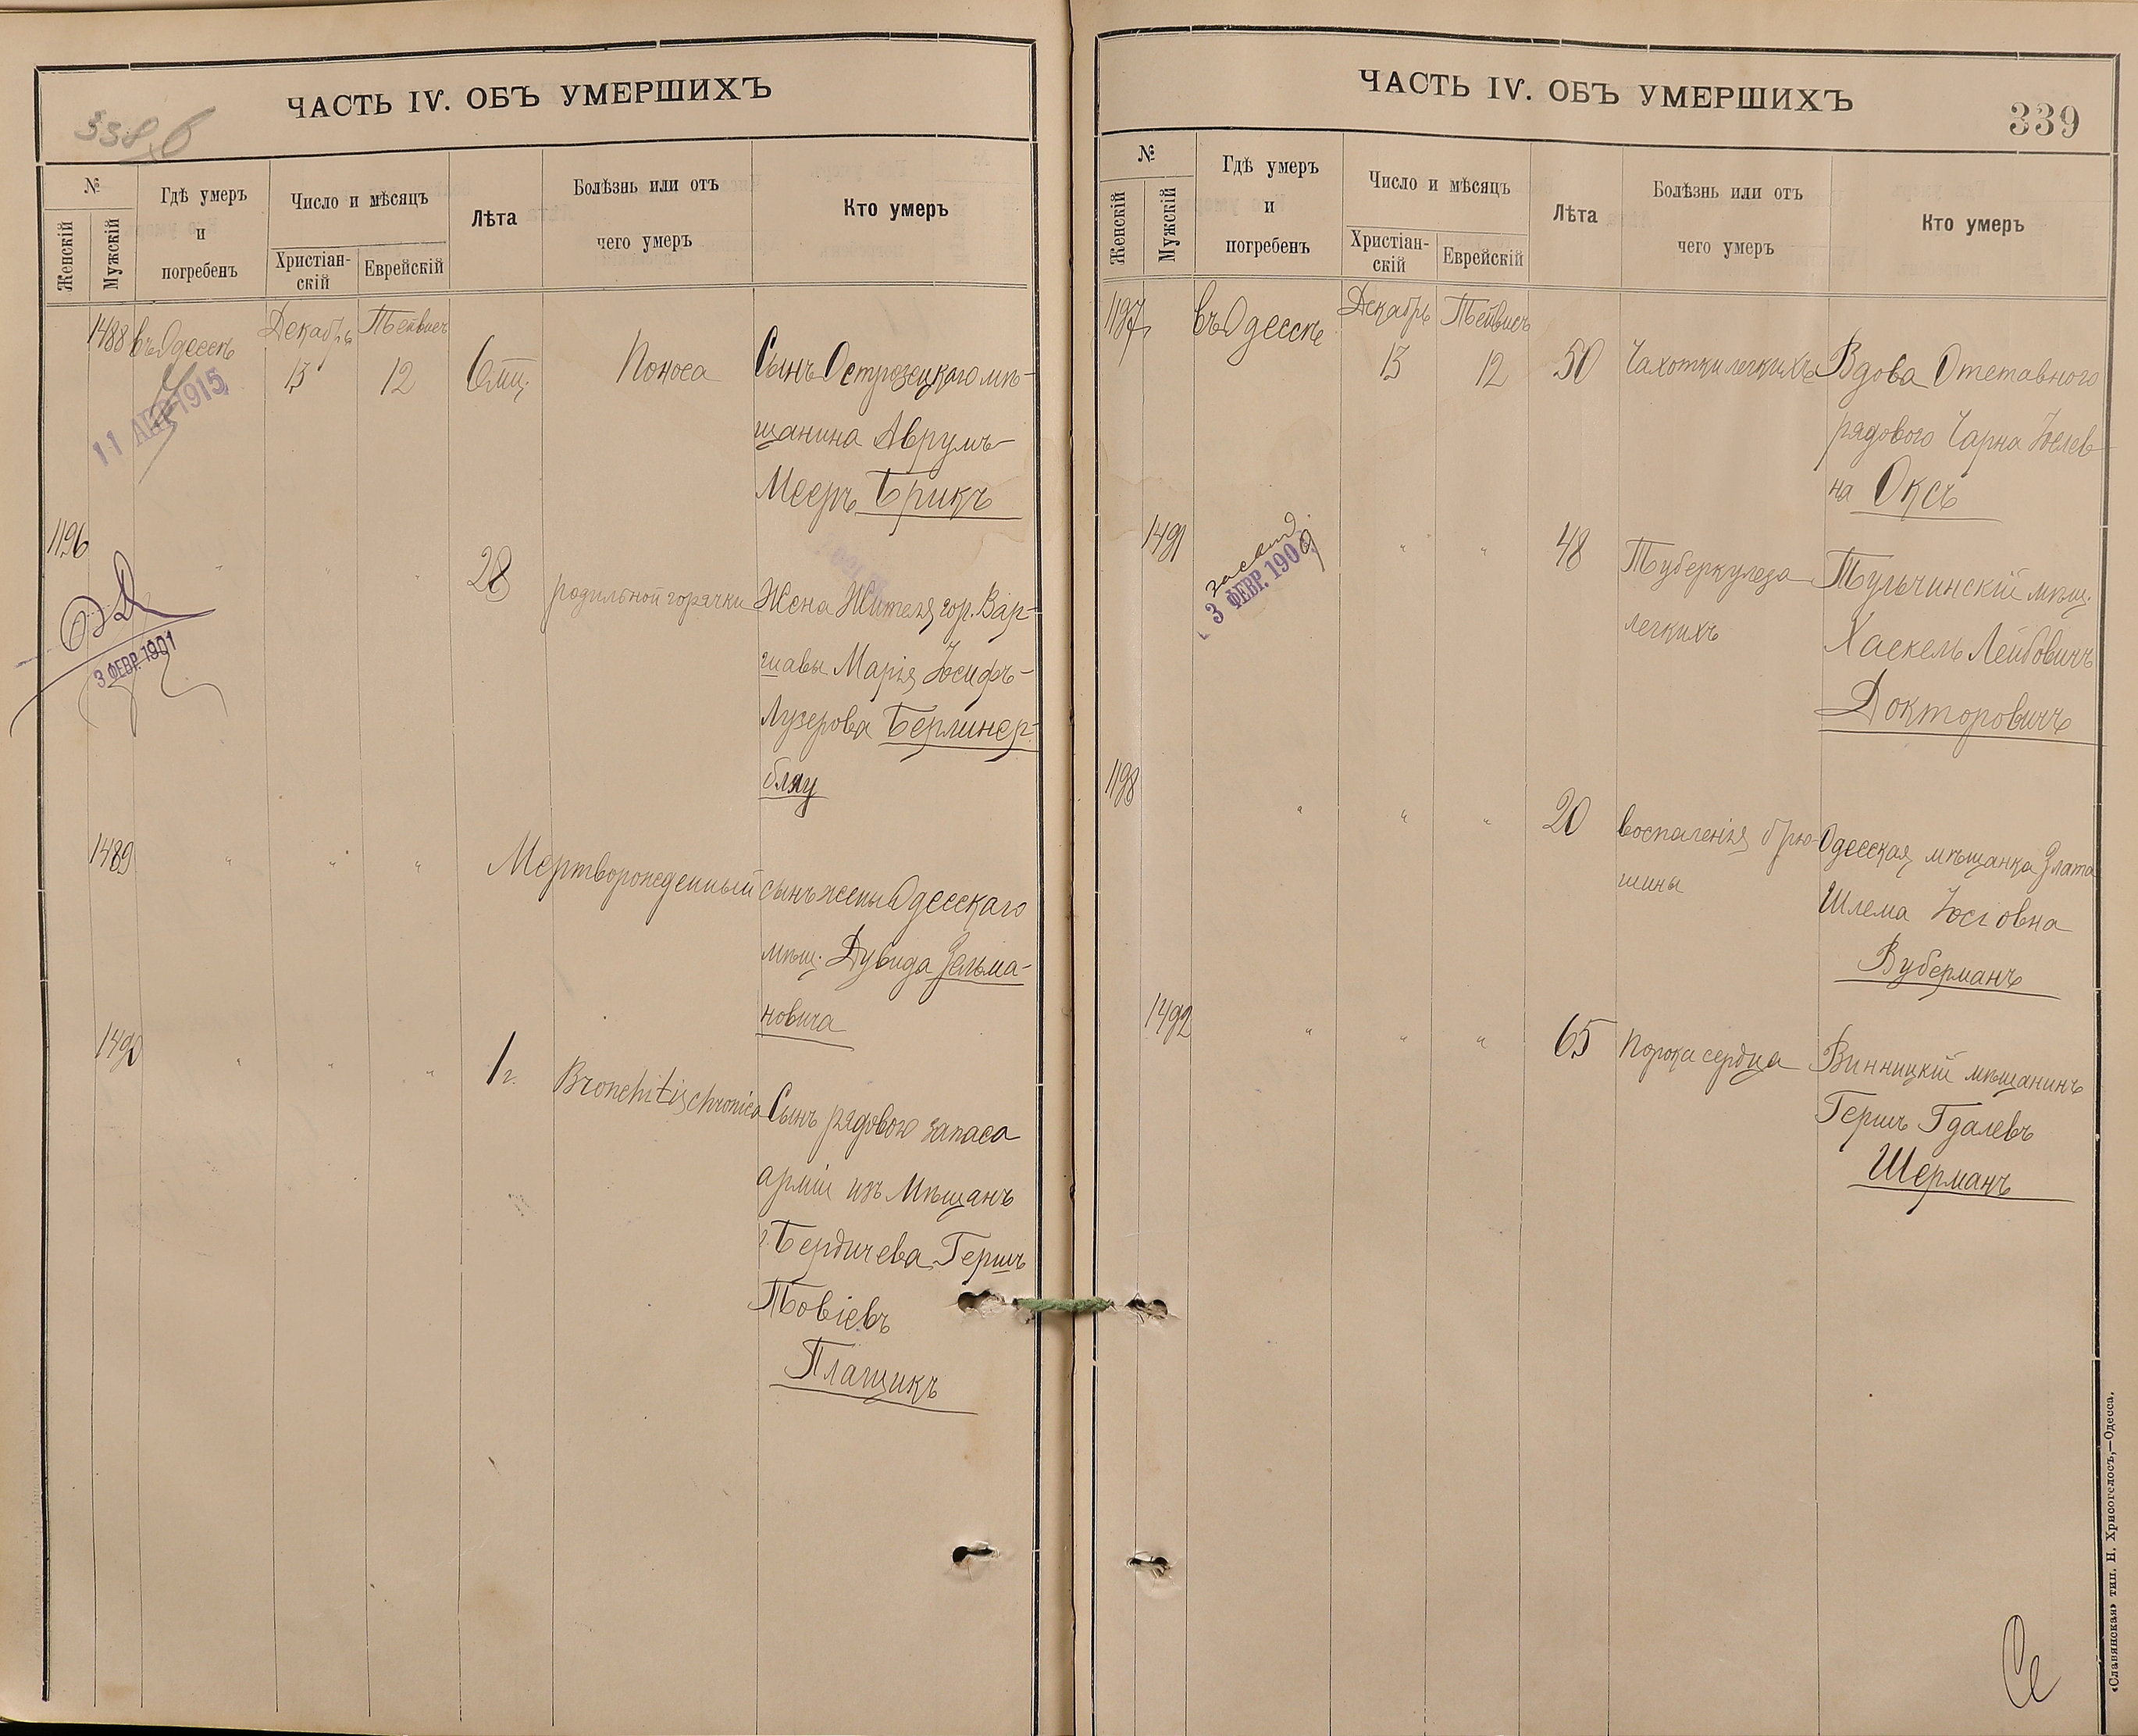 ЧАСТЬ IV. ОБЪ УМЕРШИХЪ
338 б
№
Женскій
Мужскій
Гдѣ умеръ
и
погребенъ
Число и мѣсяцъ
Христіан-
скій
Еврейскій
Лѣта
Болѣзнь или отъ
чего умеръ
Кто умеръ
1488 въ Одессѣ Декабрь Тейвисъ
13 12 6 мц. Поноса Сынъ Острозецкаго мѣ-
щанина Аврумъ
Мееръ Брикъ
11 АПР 1915
1196 " " " 28 родильной горячки Жена Жителя гор. Вар-
шавы Марія Іосифъ-
Лузерова Берлинер-
блау
3 ФЕВР. 1901
1489 " " " Мертворожденный сынъ жены Одесскаго
мѣщ. Дувида Зельма-
новича
1490 " " " 1 г. Bronchitis chronica Сынъ рядового запаса
арміи изъ Мѣщанъ
г. Бердичева Гершъ
Товіевъ
Плащикъ
ЧАСТЬ IV. ОБЪ УМЕРШИХЪ
339
№
Женскій
Мужскій
Гдѣ умеръ
и
погребенъ
Число и мѣсяцъ
Христіан-
скій
Еврейскій
Лѣта
Болѣзнь или отъ
чего умеръ
Кто умеръ
1197 въ Одессѣ Декабрь Тейвисъ
13 12 50 Чахотки легкихъ Вдова Отставного
рядового Чарна Іосев-
на Оксъ
1491 " " 48 Туберкулеза Тульчинскій мѣщ.
легкихъ Хаскель Лейбовичъ
Докторовичъ
засвид
3 ФЕВР. 190
1198 " " " 20 воспаленія брю- Одесская мѣщанка Злата
шины Шлема Іосіовна
Вуберманъ
1492 " " " 65 Порока сердца Винницкій мѣщанинъ
Гершъ Гдалевъ
Шерманъ
«Славянская» тип. Н. Хрисогелосъ,—Одесса.